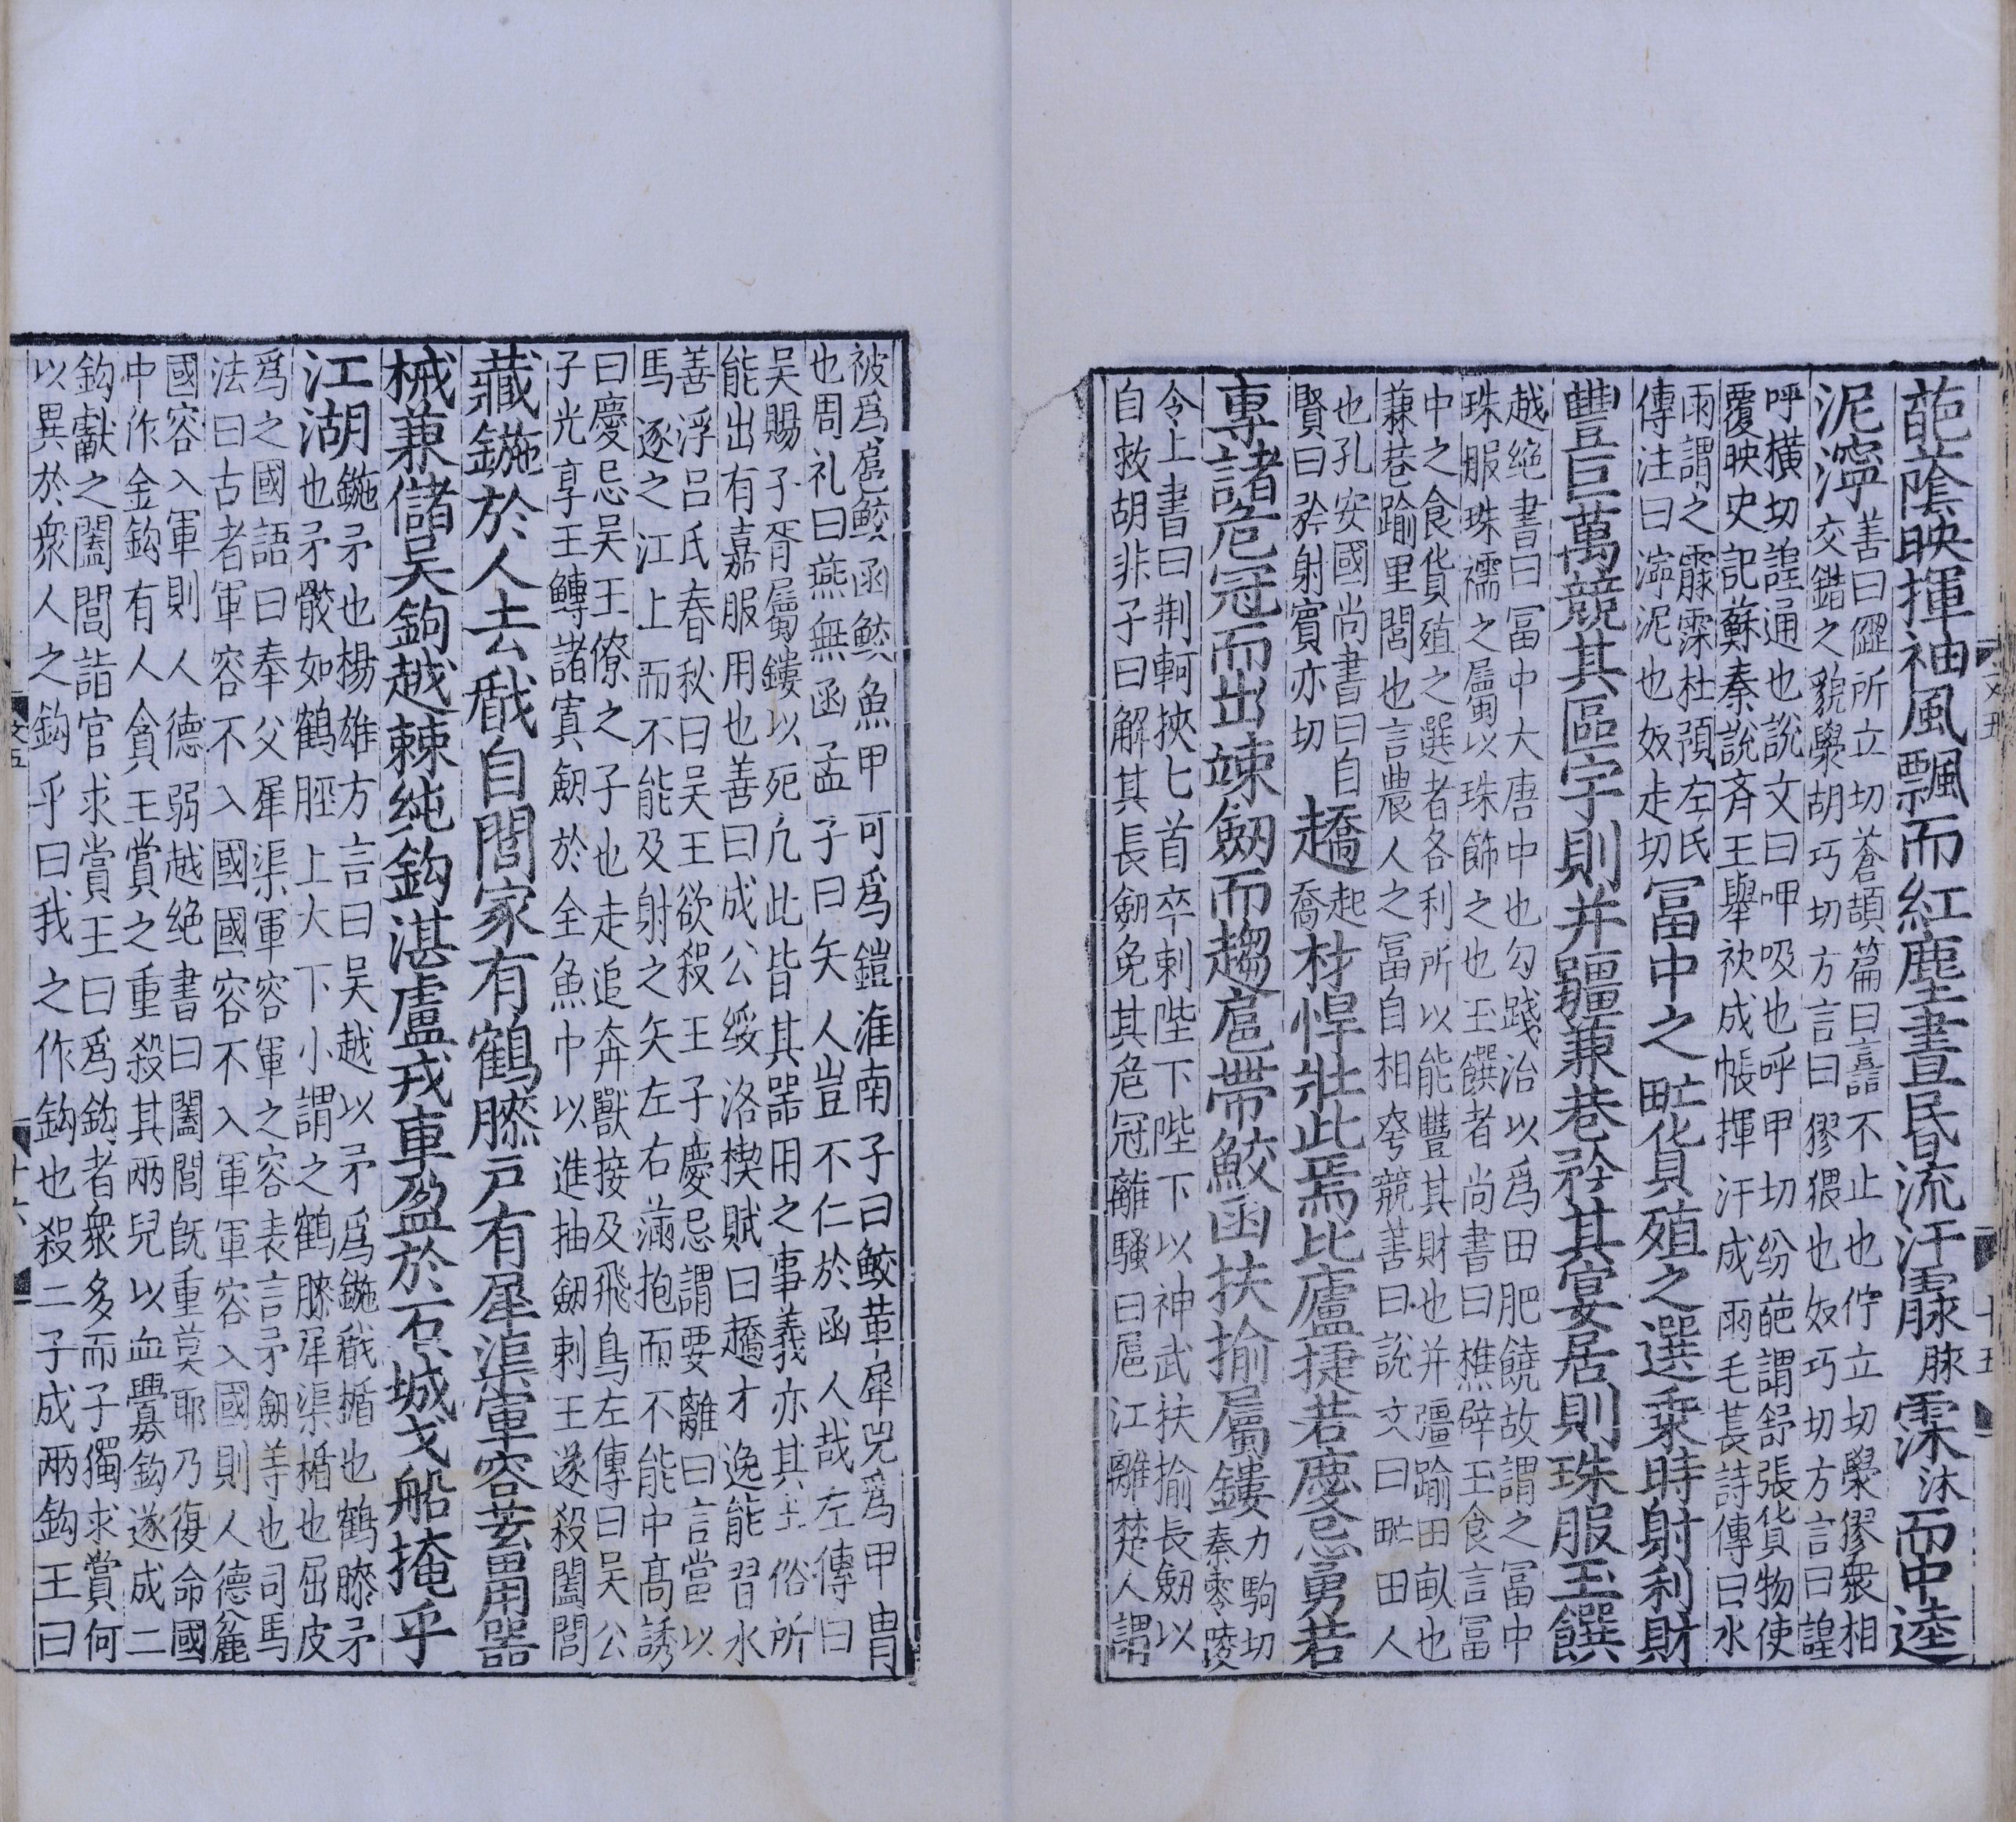 葩蔭映揮袖風飄而紅塵晝昏流汗霡脉霂沐而中逵
泥濘善曰㱊所立切蒼頡篇曰䜚不止也佇立切鸒膠衆相
交錯之貌鸒胡巧切方言曰膠猥也奴巧切方言曰諻
呼橫切諻通也說文曰呷吸也呼甲切紛葩謂舒張貨物使
覆映史記蘇秦說齊王舉袂成帳揮汗成雨毛萇詩傳曰水
雨謂之霡霂杜預左氏
傳注曰濘泥也奴走切冨中之甿貨殖之選乗時射利財
豐巨萬競其區宇則并疆兼巷矜其宴居則珠服玉饌
越絶書曰冨中大唐中也勾踐治以爲田肥饒故謂之冨中
珠服珠襦之屬以珠飾之也玉饌者尚書曰惟辟玉食言冨
中之食貨殖之選者各利所以能豐其財也并彊踰田畝也
兼巷踰里閭也言農人之冨自相夸競善曰說文曰甿田人
也孔安國尚書曰自
賢曰矜射賔亦切
趫起喬材悍壯此焉比廬捷若慶忌勇若
專諸危冠而出竦劒而趨扈帶鮫函扶揄屬鏤力駒切秦零陵
令上書曰荆軻挾匕首卒刺陛下陛下以神武扶揄長劒以
自救胡非子曰解其長劒免其危冠離騷曰扈江離楚人謂
被爲扈鮫函鮫魚甲可爲鎧淮南子曰鮫革犀兕爲甲冑
也周礼曰燕無函孟子曰矢人豈不仁於函人哉左傳曰
吴賜子胥屬鏤以死凢此皆其器用之事義亦其土俗所
能出有嘉服用也善曰成公綏洛禊賦曰趫才逸能習水
善浮吕氏春秋曰吴王欲殺王子慶忌謂要離曰言當以
馬逐之江上而不能及射之矢左右滿抱而不能中髙誘
曰慶忌吴王僚之子也走追奔獸接及飛鳥左傳曰吴公
子光享王鱄諸寘劒於全魚中以進抽劒刺王遂殺闔閭
藏鍦於人去㦸自閭家有鶴膝戸有犀渠軍容蓄用器
械兼儲吴鉤越棘純鈞湛盧戎車盈於石城戈船掩乎
江湖鍦矛也楊雄方言曰吴越以矛爲鍦㦸楯也鶴膝矛
也矛骹如鶴脛上大下小謂之鶴膝犀渠楯也屈皮
爲之國語曰奉父犀渠軍容軍之容表言矛劒等也司馬
法曰古者軍容不入國國容不入軍軍容入國則人德麄
國容入軍則人德弱越絶書曰闔閭旣重莫耶乃復命國
中作金鈎有人貪王賞之重殺其兩兒以血釁鈎遂成二
鈎獻之闔閭詣官求賞王曰爲鈎者衆多而子獨求賞何
以異於衆人之鈎乎曰我之作鈎也殺二子成兩鈎王曰